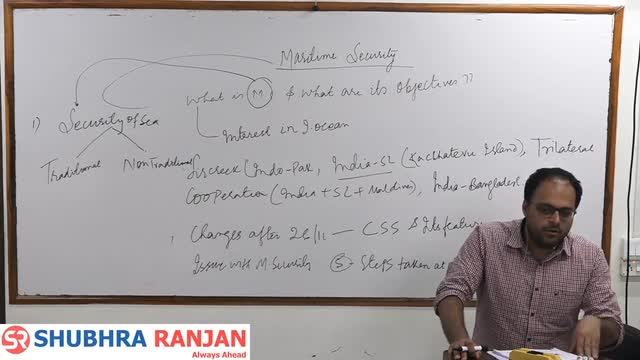 Maritime Security
What is M & what are its objectives ??
1) Security of Sea
Interest in I.ocean
Traditional Non Traditional
Sircreek (Indo-Pak, India-SL (Kachhatevu Island), Trilateral
Cooperation (India + SL + Maldives), India-Bangladesh
Changes after 26/11 — CSS & Its
Issue with M Security (5)- Steps taken at
SR SHUBHRA RANJAN
Always Ahead